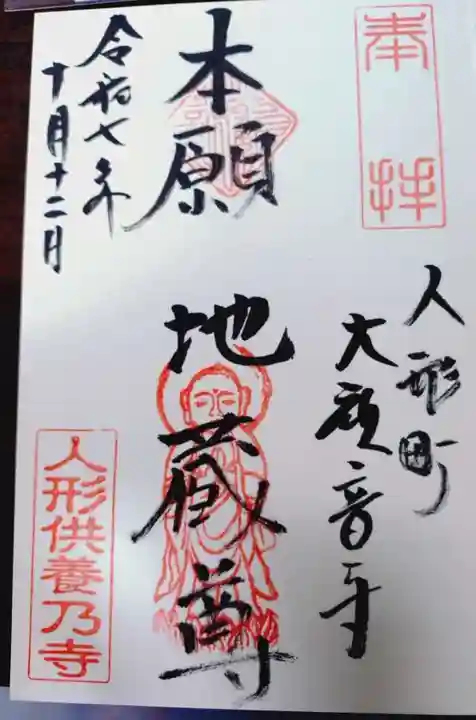 奉拝
人形町
大観音寺
本願地蔵尊
令和七年
十月十二日
人形供養乃寺